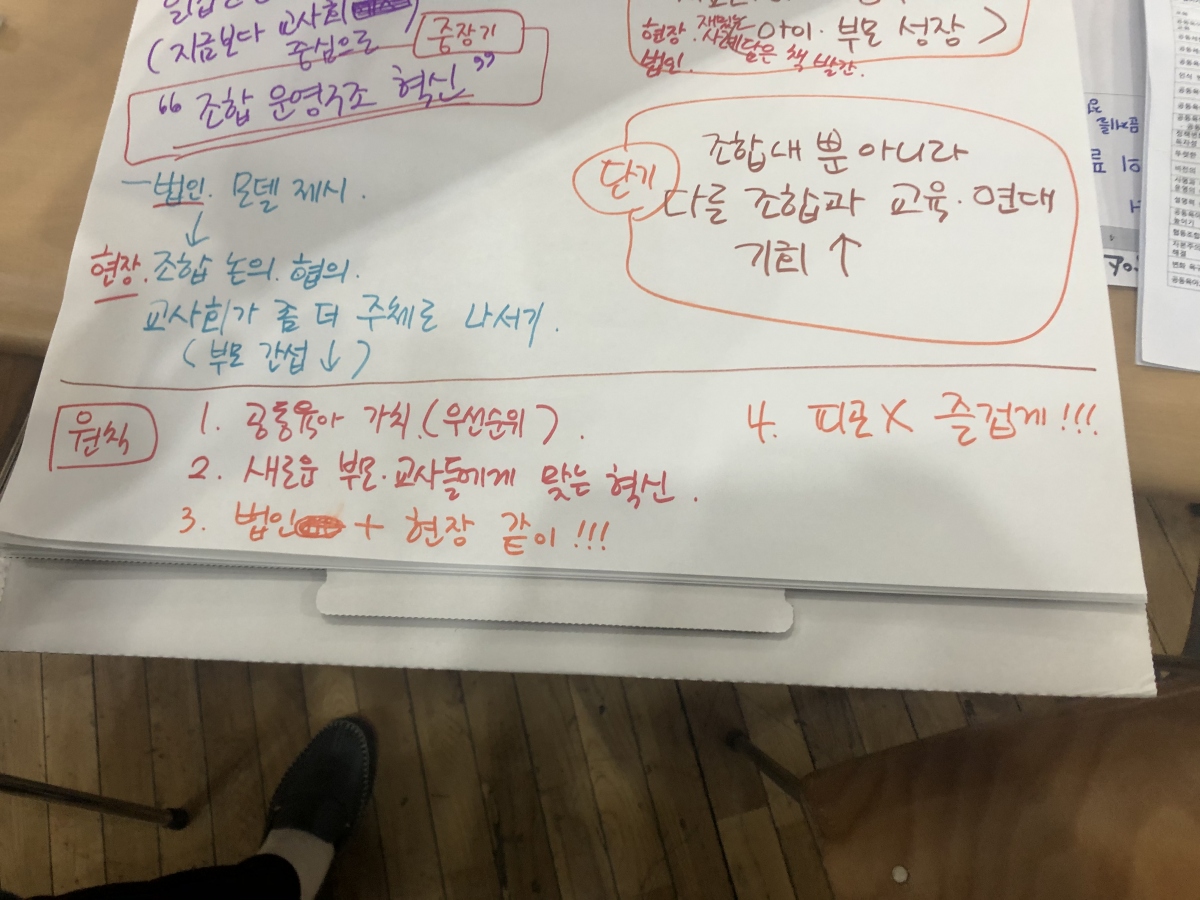 (지금보다 교사회
중심으로
중장기
"조합 운영구조 혁신"
- 법인. 모델 제시.
↓
현장. 조합 논의. 협의.
교사회가 좀 더 주체로 나서기.
(부모 간섭 ↓)
현장. 재밌는 아이·부모 성장 >
사례담은 책 발간.
법인.
단기
조합내 뿐 아니라
다를 조합과 교육·연대
기회 ↑
원칙
1. 공동육아 가치.(우선순위).
2. 새로운 부모·교사들에게 맞는 혁신.
3. 법인 + 현장 같이!!!
4. 피로X 즐겁게!!!